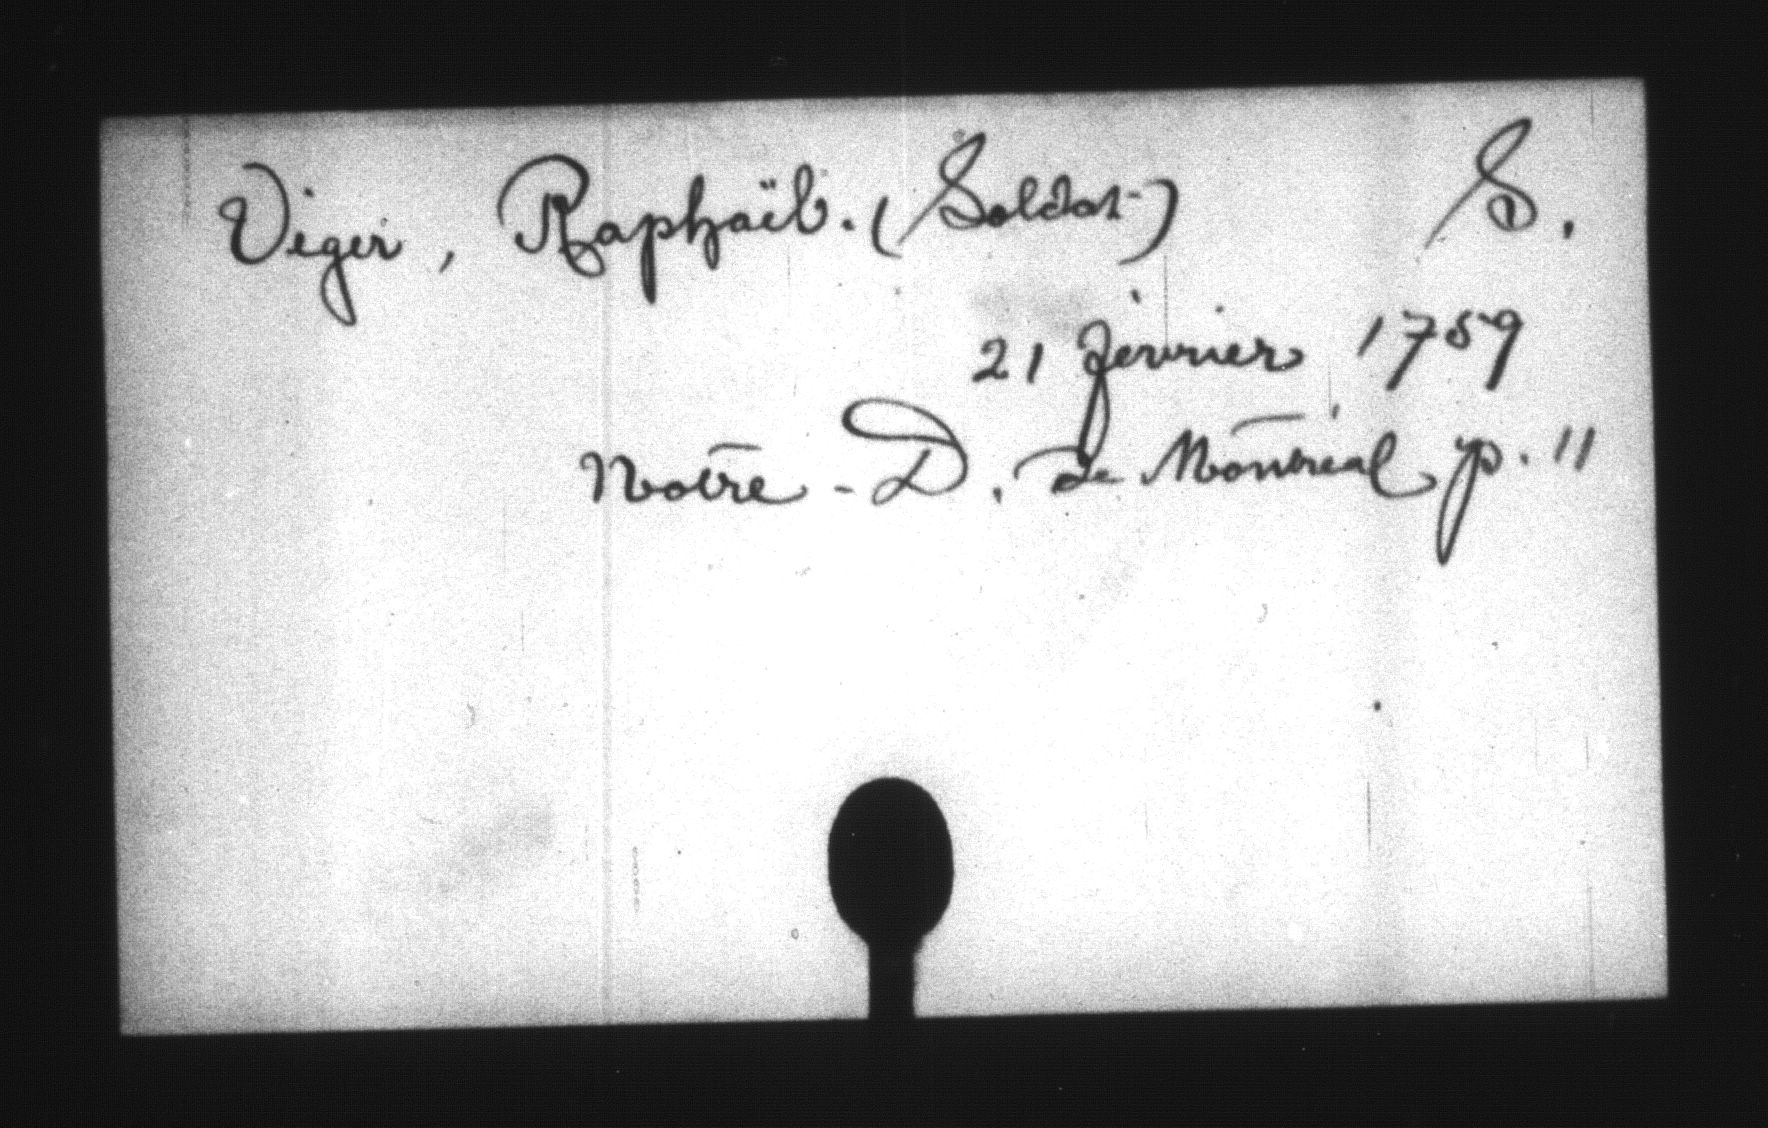 Viger, Raphaël. (Soldat) S.
21 février 1759
Notre-D. de Montréal p. 11